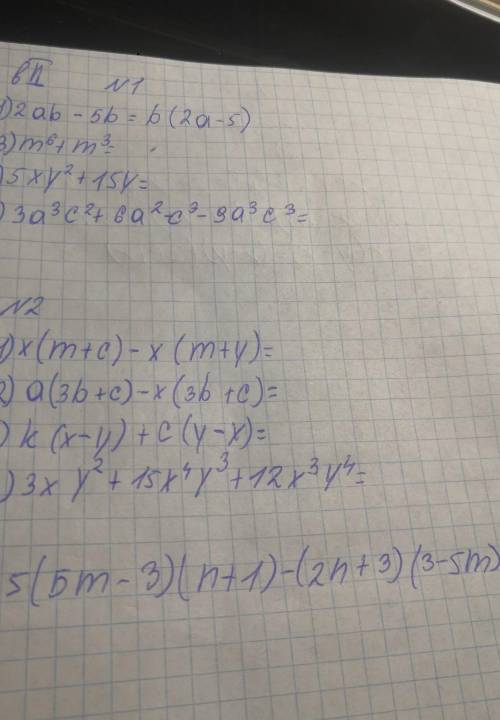 вII N1
1) 2ab - 5b = b(2a-5)
3) m⁶ + m³ =
) 5xy² + 15y =
) 3a³c² + 6a²c³ - 9a³c³ =
N2
1) x(m+c) - x(m+y) =
2) a(3b+c) - x(3b+c) =
) k(x-y) + c(y-x) =
) 3xy² + 15x⁴y³ + 12x³y⁴ =
5(5m-3)(n+1) - (2n+3)(3-5m)